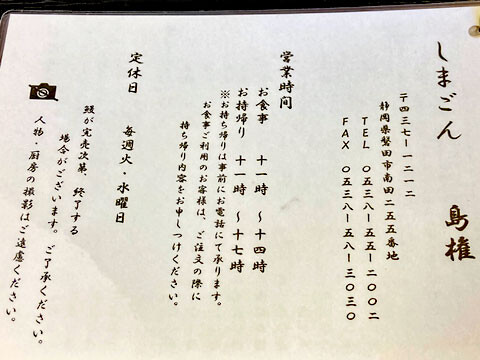 しまごん　島権
〒四三七ー一二一二
静岡県磐田市南田二五五番地
TEL　〇五三八ー五五ー二〇〇二
FAX　〇五三八ー五八ー三〇三〇
営業時間
お食事　十一時　～十四時
お持帰り　十一時　～十七時
※お持ち帰りは事前にお電話にて承ります。
お食事ご利用のお客様は、ご注文の際に
持ち帰り内容をお申しつけください。
定休日　毎週火・水曜日
鰻が完売次第、終了する
場合がございます。ご了承ください。
人物・厨房の撮影はご遠慮ください。